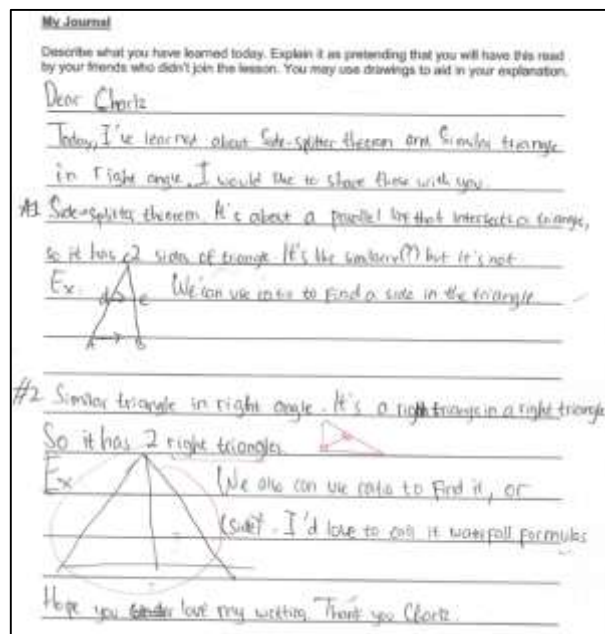 My Journal
Describe what you have learned today. Explain it as pretending that you will have this read
by your friends who didn't join the lesson. You may use drawings to aid in your explanation.
Dear Charlz
Today, I've learned about Side-splitter theorem and Similar triangle
in right angle. I would like to share these with you.
#1 Side-splitter theorem. It's about a parallel line that intersects a triangle,
so it has 2 sides of triangle. It's like similarity(?) but it's not.
C
Ex. d e We can use ratio to find a side in the triangle.
A B
#2 Similar triangle in right angle. It's a right triangle in a right triangle
So it has 2 right triangles.
Ex We also can use ratio to find it, or
(side). I'd love to call it waterfall formulas
Hope you love my writting. Thank you Charlz.